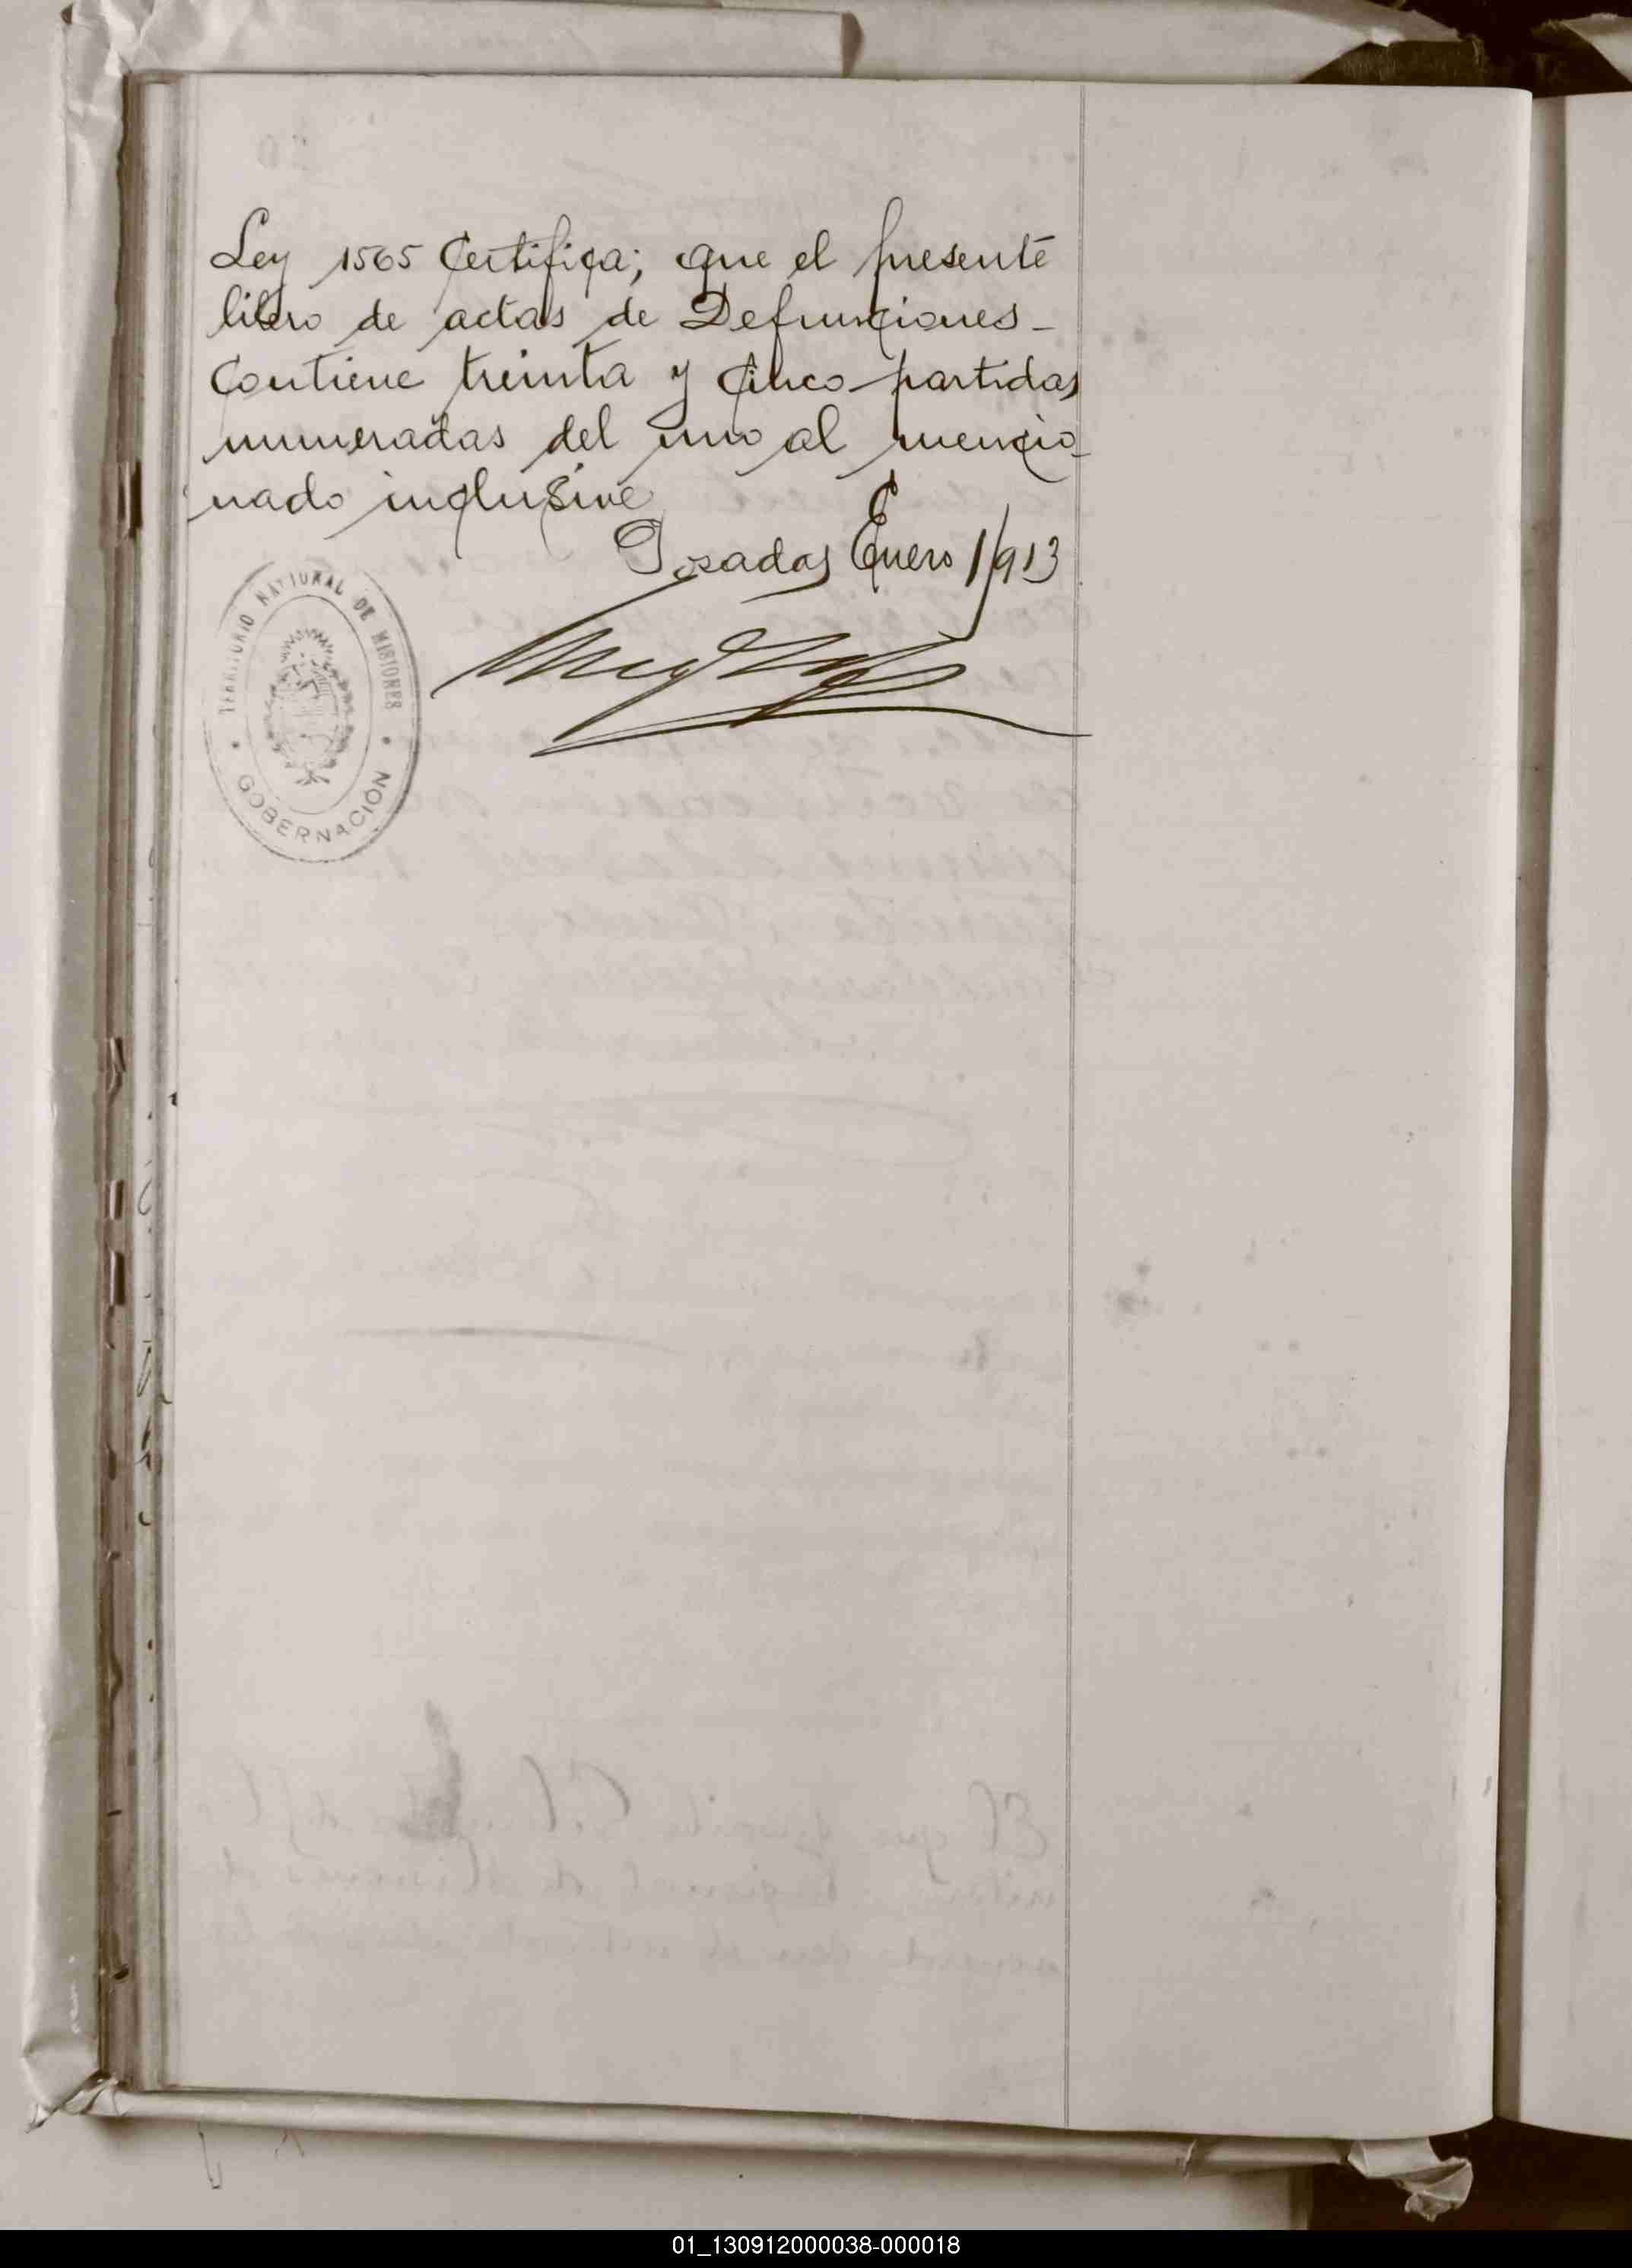 Ley 1565 Certifica; que el presente
libro de actas de Defunciones-
Contiene treinta y cinco partidas
numeradas del uno al mencio-
nado inclusive
Posadas Enero 1/913
TERRITORIO NATIONAL DE MISIONES
GOBERNACIÓN
01_130912000038-000018